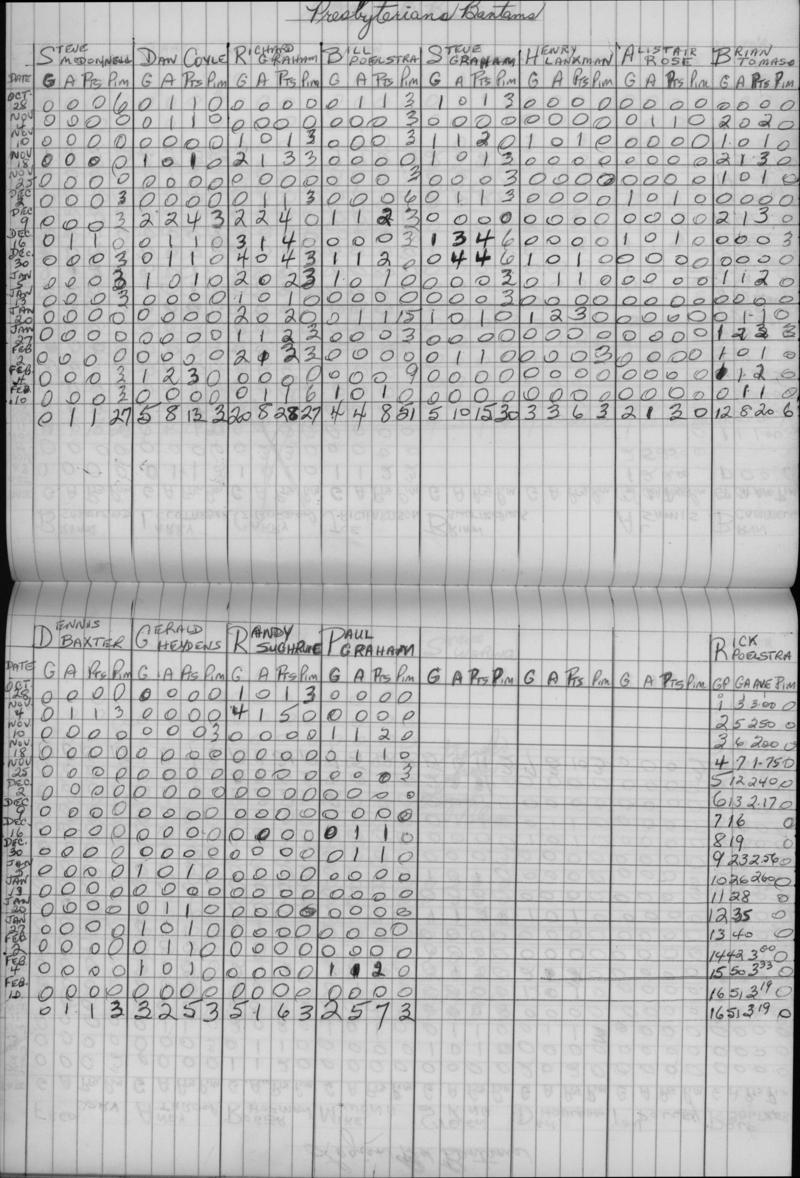 Presbyterians Bantams
STEVE MCDONNELL DAN COYLE RICHARD GRAHAM BILL POELSTRA STEVE GRAHAM HENRY LANKMAN ALISTAIR ROSE BRIAN TOMASO
DATE G A Pts Pim G A Pts Pim G A Pts Pim G A Pts Pim G A Pts Pim G A Pts Pim G A Pts Pim G A Pts Pim
OCT. 28 0 0 0 6 0 1 1 0 0 0 0 0 0 1 1 3 1 0 1 3 0 0 0 0 0 0 0 0 0 0 0 0
NOV 4 0 0 0 0 0 1 1 0 0 0 0 0 0 0 0 3 0 0 0 0 0 1 1 0 2 0 2 0
NOV 10 0 0 0 0 0 0 0 0 1 0 1 3 0 0 0 3 1 1 2 0 1 0 1 0 0 0 0 0 1 0 1 0
NOV 18 0 0 0 0 1 0 1 0 2 1 3 3 0 0 0 0 1 0 1 3 0 0 0 0 0 0 0 0 2 1 3 0
NOV 25 0 0 0 0 0 0 0 0 0 0 0 0 0 0 0 3 0 0 0 3 0 0 0 0 0 0 0 0 1 0 1 0
DEC 2 0 0 0 3 0 0 0 0 0 1 1 3 0 0 0 6 0 1 1 3 0 0 0 0 1 0 1 0 0 0 0 0
DEC 9 0 0 0 3 2 2 4 3 2 2 4 0 1 1 2 3 0 0 0 0 0 0 0 0 0 0 0 0 2 1 3 0
DEC 16 0 1 1 0 0 1 1 0 3 1 4 0 0 0 0 3 1 3 4 6 0 0 0 0 1 0 1 0 0 0 0 3
DEC 30 0 0 0 3 0 1 1 0 4 0 4 3 1 1 2 0 0 4 4 6 1 0 1 0 0 0 0 0 0 0 0 0
JAN 5 0 0 0 3 1 0 1 0 2 0 2 3 1 0 1 0 0 0 0 3 0 1 1 0 0 0 0 0 1 1 2 0
JAN 13 0 0 0 3 0 0 0 0 1 0 1 0 0 0 0 0 0 0 0 3 0 0 0 0 0 0 0 0 0 0 0 0
JAN 20 2 0 2 0 0 1 1 15 1 0 1 0 1 2 3 0 0 0 0 0 0 1 1 0
JAN 27 0 0 0 0 0 0 0 0 1 1 2 3 0 0 0 3 0 0 0 0 0 0 0 0 0 0 0 0 1 2 3 3
FEB 2 0 0 0 0 0 0 0 0 2 0 2 3 0 0 0 0 0 1 1 0 0 0 0 3 0 0 0 0 1 0 1 0
FEB 4 0 0 0 3 1 2 3 0 0 0 0 0 0 0 0 9 0 0 0 0 0 0 0 0 0 0 0 0 1 1 2 0
FEB. 10 0 0 0 3 0 0 0 0 0 1 1 6 1 0 1 0 0 0 0 0 0 0 0 0 0 0 0 0 0 1 1 0
0 1 1 27 5 8 13 3 20 8 28 27 4 4 8 51 5 10 15 30 3 3 6 3 2 1 3 0 12 8 20 6
DENNIS BAXTER GERALD HEYDENS RANDY SUGHRUE PAUL GRAHAM RICK POELSTRA
DATE G A Pts Pim G A Pts Pim G A Pts Pim G A Pts Pim G A Pts Pim G A Pts Pim G A Pts Pim GP GA AVE Pim
OCT. 28 0 0 0 0 0 0 0 0 1 0 1 3 0 0 0 0 1 3 3.00 0
NOV 4 0 1 1 3 0 0 0 0 4 1 5 0 0 0 0 0 2 5 2.50 0
NOV 10 0 0 0 0 0 0 0 3 0 0 0 0 1 1 2 0 3 6 2.00 0
NOV 18 0 0 0 0 0 0 0 0 0 0 0 0 0 1 1 0 4 7 1.75 0
NOV 25 0 0 0 0 0 0 0 0 0 0 0 0 0 0 0 3 5 12 2.40 0
DEC 2 0 0 0 0 0 0 0 0 0 0 0 0 0 0 0 0 6 13 2.17 0
DEC 9 0 0 0 0 0 0 0 0 0 0 0 0 0 0 0 0 7 16 0
DEC 16 0 0 0 0 0 0 0 0 0 0 0 0 0 1 1 0 8 19 0
DEC. 30 0 0 0 0 0 0 0 0 0 0 0 0 0 1 1 0 9 23 2.56 0
JAN 5 0 0 0 0 1 0 1 0 0 0 0 0 0 0 0 0 10 26 2.60 0
JAN 13 0 0 0 0 0 0 0 0 0 0 0 0 0 0 0 0 11 28 0
JAN 20 0 0 0 0 0 1 1 0 0 0 0 0 0 0 0 0 12 35 0
JAN 27 0 0 0 0 1 0 1 0 0 0 0 0 0 0 0 0 13 40 0
FEB 2 0 0 0 0 0 1 1 0 0 0 0 0 0 0 0 0 14 42 3.00 0
FEB 4 0 0 0 0 1 0 1 0 0 0 0 0 1 1 2 0 15 50 3.33 0
FEB. 10 0 0 0 0 0 0 0 0 0 0 0 0 0 0 0 0 16 51 3.19 0
0 1 1 3 3 2 5 3 5 1 6 3 2 5 7 3 16 51 3.19 0